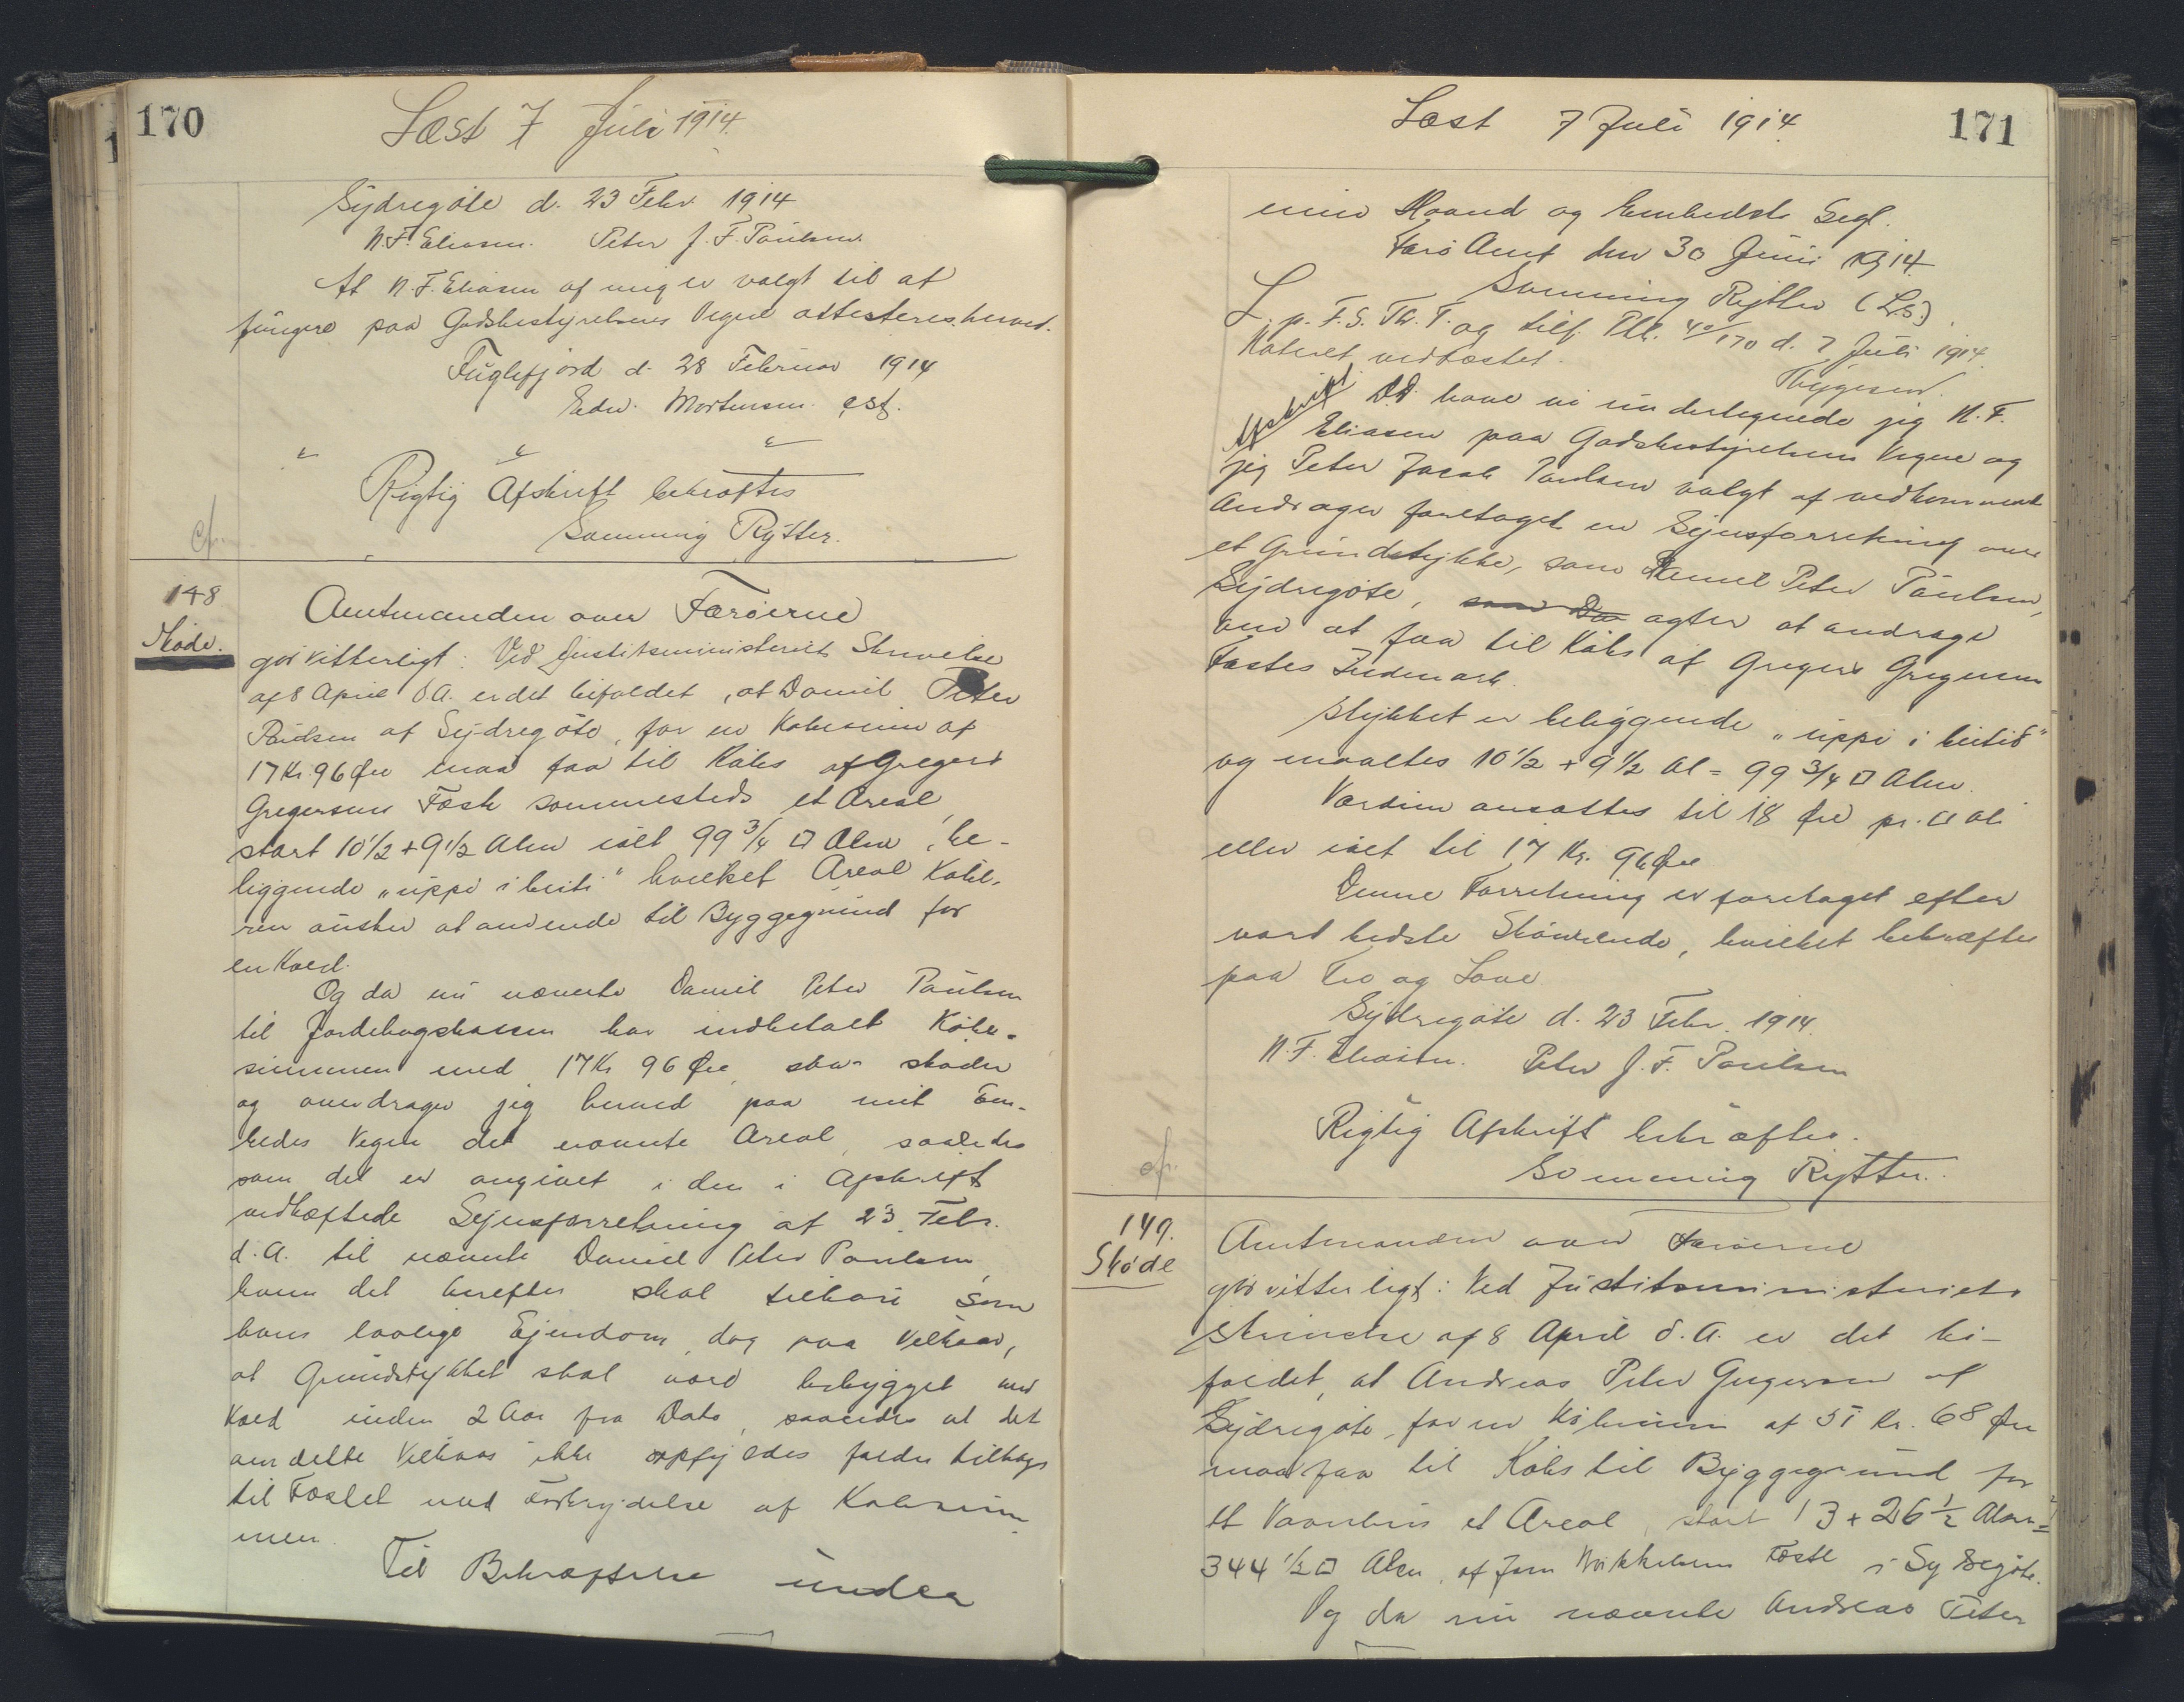 170
Læst 7 Juli 1914.
Sÿdregöte d. 23 Febr. 1914
N. F. Eliasen. Peter J. F. Paulsen.
At N. F. Eliasen af mig er valgt til at
fungere paa Godsbestyrelsens Vegne attesteres herved.
Fuglefjord d. 28 Februar 1914
Edw. Mortensen. est.
" " "
Rigtig Afskrift bekræftes
Somming Rÿtter.
cf.
148
Sköde.
Amtmanden over Færöerne
gör vitterligt: Ved Justitsministeriets Skrivelse
af 8 April d. A. er det bifaldet, at Daniel Peter
Paulsen af Sÿdregöte, for en Købesum af
17 Kr. 96 Øre maa faa til Købs af Gregers
Gregersens Fæste sammesteds et Areal,
stort 10 1/2 + 9 1/2 Alen ialt 99 3/4 □ Alen, be-
liggende „uppi i beiti" hvilket Areal Købe-
ren önsker at anvende til Byggegrund for
en Kval.
Og da nu nævnte Daniel Peter Paulsen
til Jordebogskassen har indbetalt Købe-
summen med 17 Kr 96 Øre, saa sköder
og overdrager jeg herved paa mit Em-
bedes Vegne det nævnte Areal, saaledes
som det er angivet i den i Afskrift
vedhæftede Sÿnsforretning af 23. Febr.
d. A. til nævnte Daniel Peter Paulsen,
hvem det herefter skal tilhöre som
hans lovlige Ejendom, dog paa Vilkaar,
at Grundstykket skal være bebygget med
inden 2 Aar fra Dato, saaledes at det
om dette Vilkaar ikke opfyldes falder tilbage
til Fæstet mod af Købesum-
men.
Til Bekræftelse under
171
Læst 7 Juli 1914.
min Haand og Embeds Segl.
Færö Amt den 30 Juni 1914.
Somming Rÿtter (L.S.)
L. p. F. S. Th. T. og tilf. Pk. 40/170 d. 7 Juli 1914
vedhæftet.
Thygesen.
Afskrift
D.D. have vi undertegnede jeg N. F.
Eliasen paa Godsbestyrelsens Vegne og
jeg Peter Jacob Paulsen valgt af vedkommende
Andrager foretaget en Sÿnsforretning over
et Grundstykke, som Daniel Peter Paulsen,
Sÿdregöte, som Da agter at andrage
om at faa til Købs af Gregers Gregersens
Fæstes Indmark.
Stykket er beliggende „uppi i beitið"
og maaltes 10 1/2 + 9 1/2 Al = 99 3/4 □ Alen.
Værdien ansattes til 18 Øre pr. □ Al
eller ialt til 17 Kr. 96 Øre
Denne Forretning er foretaget efter
vort bedste Skönnende, hvilket bekræftes
paa Tro og Love.
Sÿdregöte d. 23 Febr. 1914.
N. F. Eliasen. Peter J. F. Paulsen
Rigtig Afskrift bekræftes.
Somming Rÿtter.
cf.
149.
Sköde
Amtmanden over Færöerne
gör vitterligt: Ved Justitsministeriets
Skrivelse af 8 April d. A. er det bi-
faldet, at Andreas Peter Gregersen af
Sÿdregöte, for en Købesum af 51 Kr. 68 Øre
maa faa til Købs til Byggegrund for
et et Areal, stort 13 + 26 1/2 Alen =
344 1/2 □ Alen, af Mikkelsens Fæste i Sydregöte.
Og da nu nævnte Andreas Peter